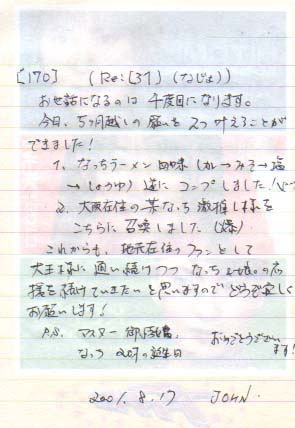 [170] (Re:[31] (なじょ))
お世話になるのは 千度目になります。
今日、5ヶ月越しの願いを 2つ叶えることが
できました！
1、なっちラーメン 四味（カレー→みそ→塩
→しょうゆ）遂に コンプしました！
2、大阪在住の某なっち激推し様を
こちらに召喚しました（爆）
これからも、地元在住のファンとして
大王様に通い続けつつ なっち
援を続けていきたいと思いますので どうぞ宜しく
お願いします！
P.S. マスター
なっち 20才の誕生日
おめでとうござい
ます！
2001.8.17 JOHN.